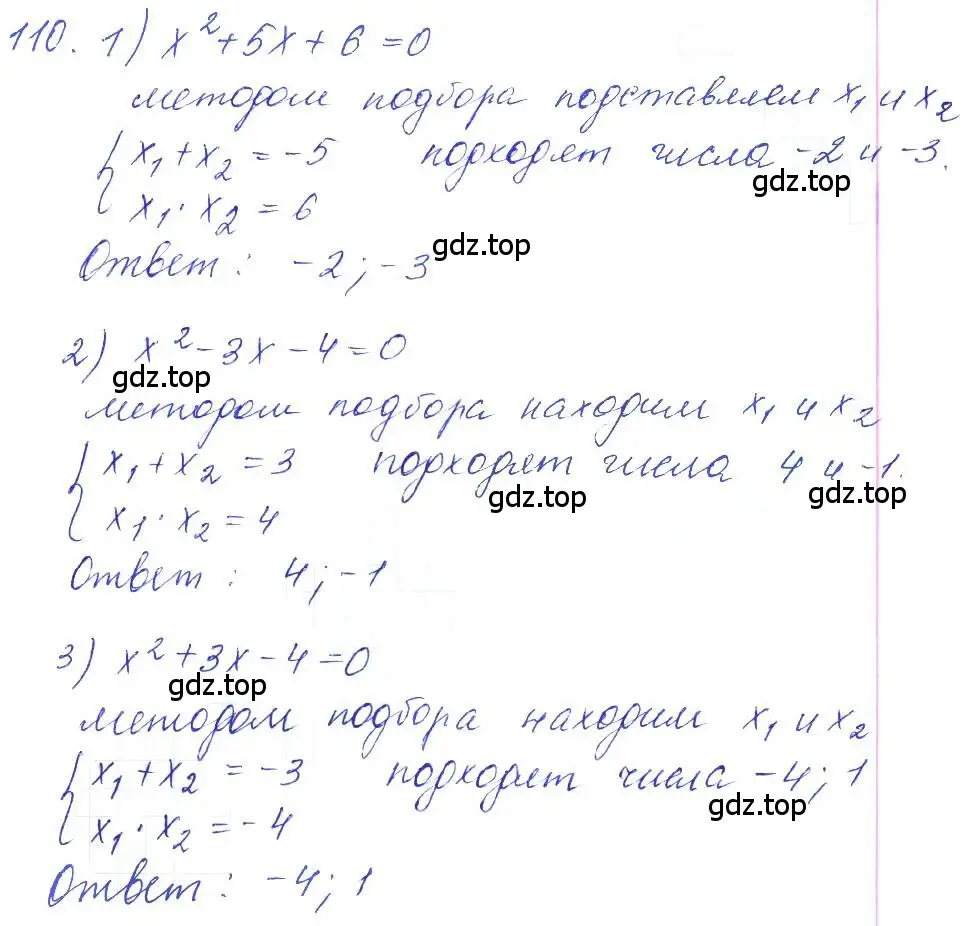 110. 1) x²+5x+6=0
методом подбора подставляем x₁ и x₂
{x₁+x₂=-5 подходят числа -2 и -3.
gdz.top
x₁·x₂=6
gdz.top
Ответ: -2; -3
2) x²-3x-4=0
gdz.top
методом подбора находим x₁ и x₂
{x₁+x₂=3 подходят числа 4 и -1.
gdz.top gdz.top
x₁·x₂=4
Ответ: 4; -1
3) x²+3x-4=0
gdz.top
методом подбора находим x₁ и x₂
{x₁+x₂=-3 подходят числа -4; 1
gdz.top
x₁·x₂=-4
Ответ: -4; 1